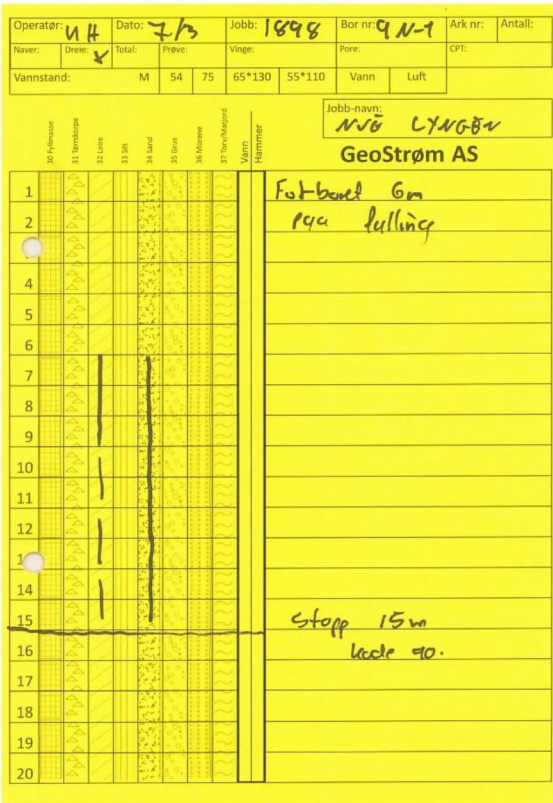 Operatør: UH Dato: 7/3 Jobb: 1898 Bor nr: 9 N-1 Ark nr: Antall:
Naver: Dreie: x Total: Prøve: Vinge: Pore: CPT:
Vannstand: M 54 75 65*130 55*110 Vann Luft
Jobb-navn:
NVE LYNGEN
GeoStrøm AS
30 Fyllmasse 31 Tørrskorpe 32 Leire 33 Silt 34 Sand 35 Grus 36 Morene 37 Torv/Matjord Vann Hammer
1 Forboret 6m
2 pga fylling
4
5
6
7
8
9
10
11
12
1
14
15 Stopp 15m
16 kode 90.
17
18
19
20